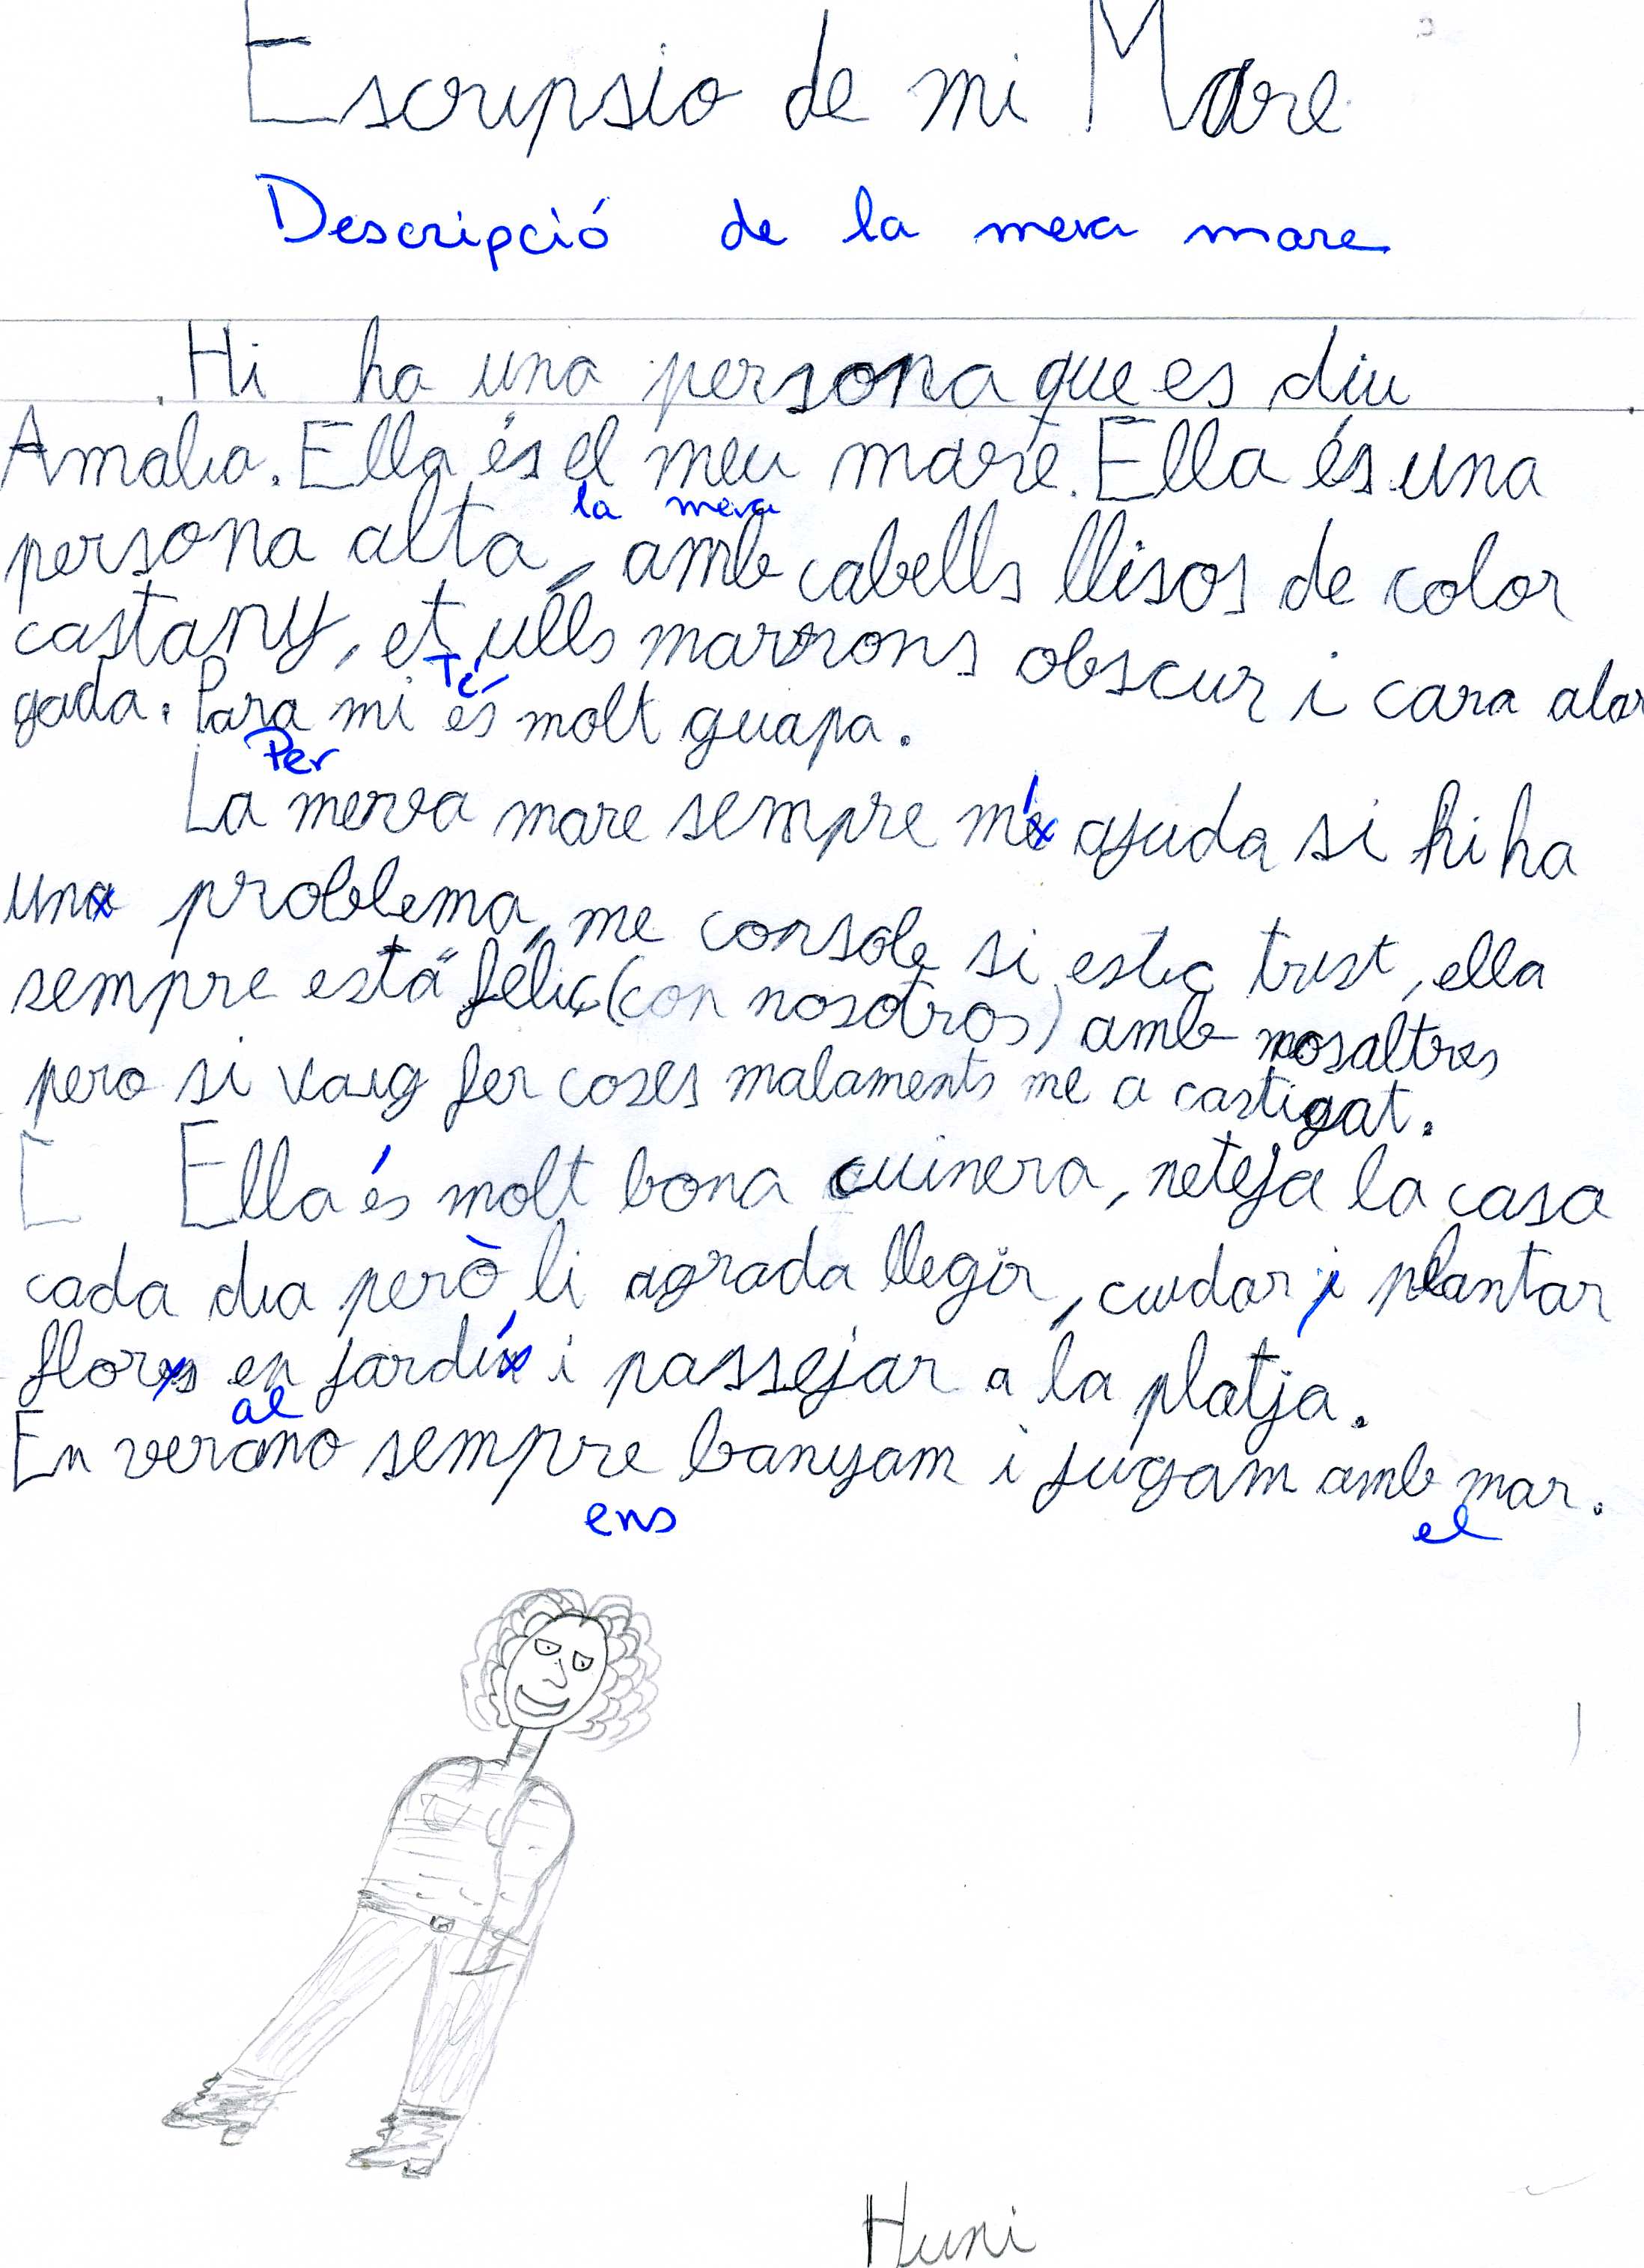 Escripsio de mi Mare
Descripció de la meva mare
Hi ha una persona que es diu
Amalia. Ella és el meu mare. Ella és una
la meva
persona alta, amb cabells llisos de color
castany, et ulls marrons obscur i cara alar
Té
gada. Para mi és molt guapa.
Per
La merva mare sempre me ajuda si hi ha
una problema, me console si estic trist, ella
sempre está féliç (con nosotros) amb nosaltres
pero si vaig fer coses malaments me a castigat.
E Ella és molt bona cuinera, neteja la casa
cada dia però li agrada llegir, cuidar i plantar
flores en jardín i passejar a la platja.
al
En verano sempre banyam i jugam amb mar.
ens el
Huni